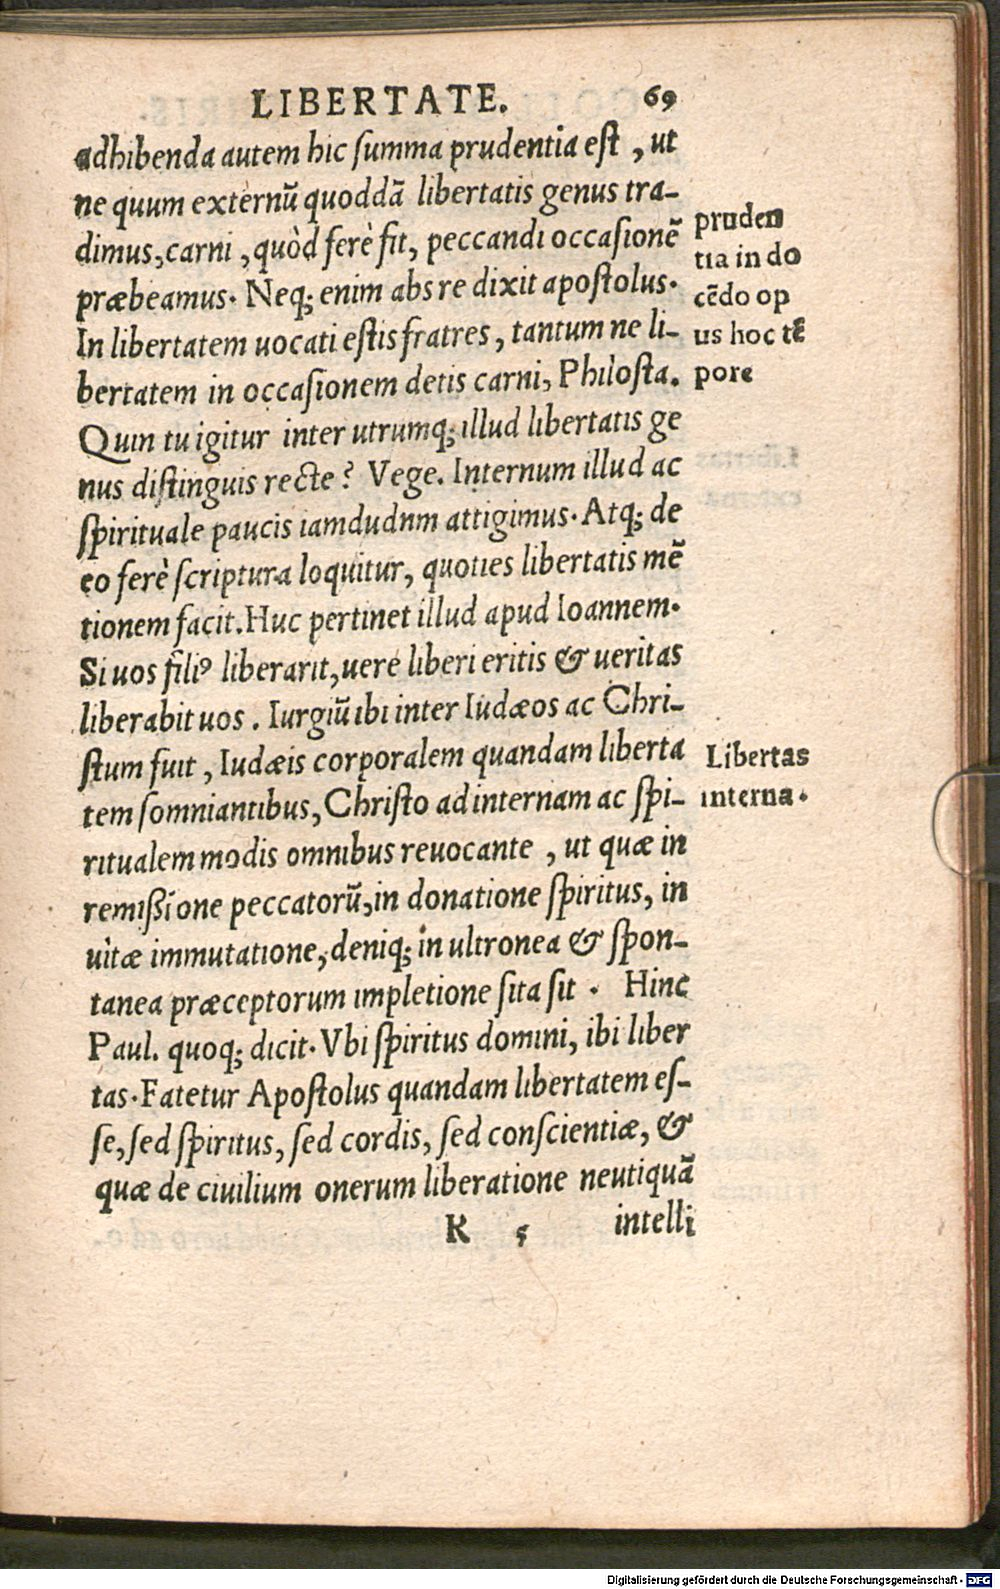 LIBERTATE. 69
adhibenda autem hic ſumma prudentia eſt , ut
ne quum externũ quoddã libertatis genus tra-
dimus, carni , quòd ferè fit, peccandi occaſionẽ
præbeamus. Neq; enim abs re dixit apoſtolus.
In libertatem uocati eſtis fratres, tantum ne li-
bertatem in occaſionem detis carni, Philoſta.
Quin tu igitur inter utrumq; illud libertatis ge
nus diſtinguis recte? Vege. Internum illud ac
ſpirituale paucis iamdudnm attigimus. Atq; de
eo ferè ſcriptura loquitur, quoties libertatis mẽ
tionem facit. Huc pertinet illud apud Ioannem.
Si uos filiꝰ liberarit, uere liberi eritis & ueritas
liberabit uos . Iurgiũ ibi inter Iudæos ac Chri-
ſtum fuit , Iudæis corporalem quandam liberta
tem ſomniantibus, Chriſto ad internam ac ſpi-
ritualem modis omnibus reuocante , ut quæ in
remißione peccatorũ, in donatione ſpiritus, in
uitæ immutatione, deniq; in ultronea & ſpon-
tanea præceptorum impletione ſita ſit . Hinc
Paul. quoq; dicit. Vbi ſpiritus domini, ibi liber
tas. Fatetur Apoſtolus quandam libertatem eſ-
ſe, ſed ſpiritus, ſed cordis, ſed conſcientiæ, &
quæ de ciuilium onerum liberatione neutiquã
K 5 intelli
pruden
tia in do
cẽdo op
us hoc tẽ
pore
Libertas
interna.
Digitalisierung gefördert durch die Deutsche Forschungsgemeinschaft - DFG